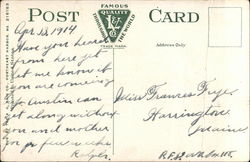 POST CARD
FAMOUS
QUALITY
THROUGHOUT THE WORLD
TRADE MARK
Address Only
Apr 13 1914
Have you heard
from here yet
let me know if
you are coming
Austin can
get along without
you and mother
for a few weeks
Miss Frances Frye
Harrington
Maine